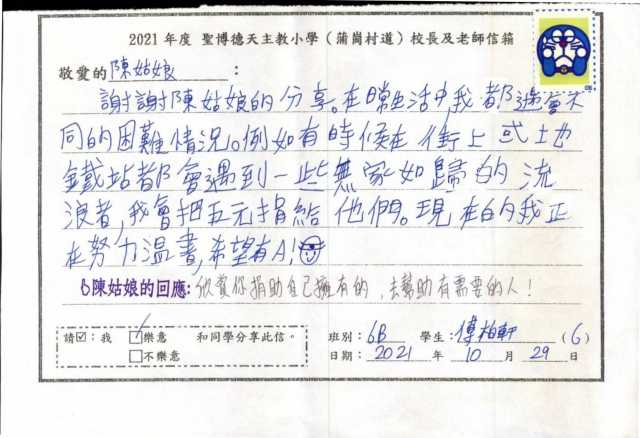 2021 年度 聖博德天主教小學（蒲崗村道）校長及老師信箱
敬愛的陳姑娘：
謝謝陳姑娘的分享。在日常生活中,我都遇會不
同的困難情況。例如有時候在街上或土地
鐵站都會遇到一些無家如歸的流
浪者,我會把五元捐給他們。現在的我正
在努力溫書,希望有A!
陳姑娘的回應: 欣賞你捐助自己擁有的，去幫助有需要的人！
請☑：我 ☑樂意 和同學分享此信。 班別：6B 學生：傅柏軒 (6)
□不樂意 日期：2021 年 10 月 29 日